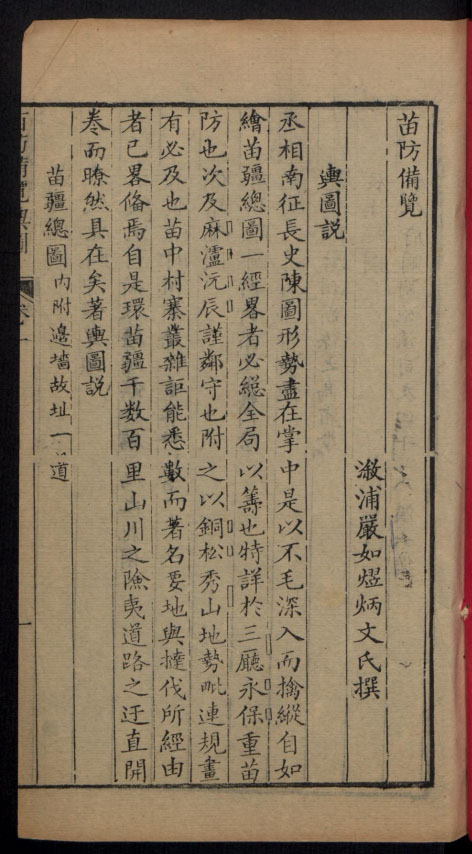 苗防備覽
溆浦嚴如熤炳文氏撰
輿圖説
丞相南征長史陳圖形勢盡在掌中是以不毛深入而擒縱自如
繪苗疆總圖一經畧者必總全局以籌也特詳於三廳永保重苗
防也次及麻瀘沅辰謹鄰守也附之以銅松秀山地勢毗連規畫
有必及也苗中村寨叢雜詎能悉數而著名要地與撻伐所經由
者已畧俻焉自是環苗疆千数百里山川之險夷道路之迂直開
卷而瞭然具在矣著輿圖説
苗疆總圖内附邊墻故址一道
苗防備覽輿圖 卷一 一